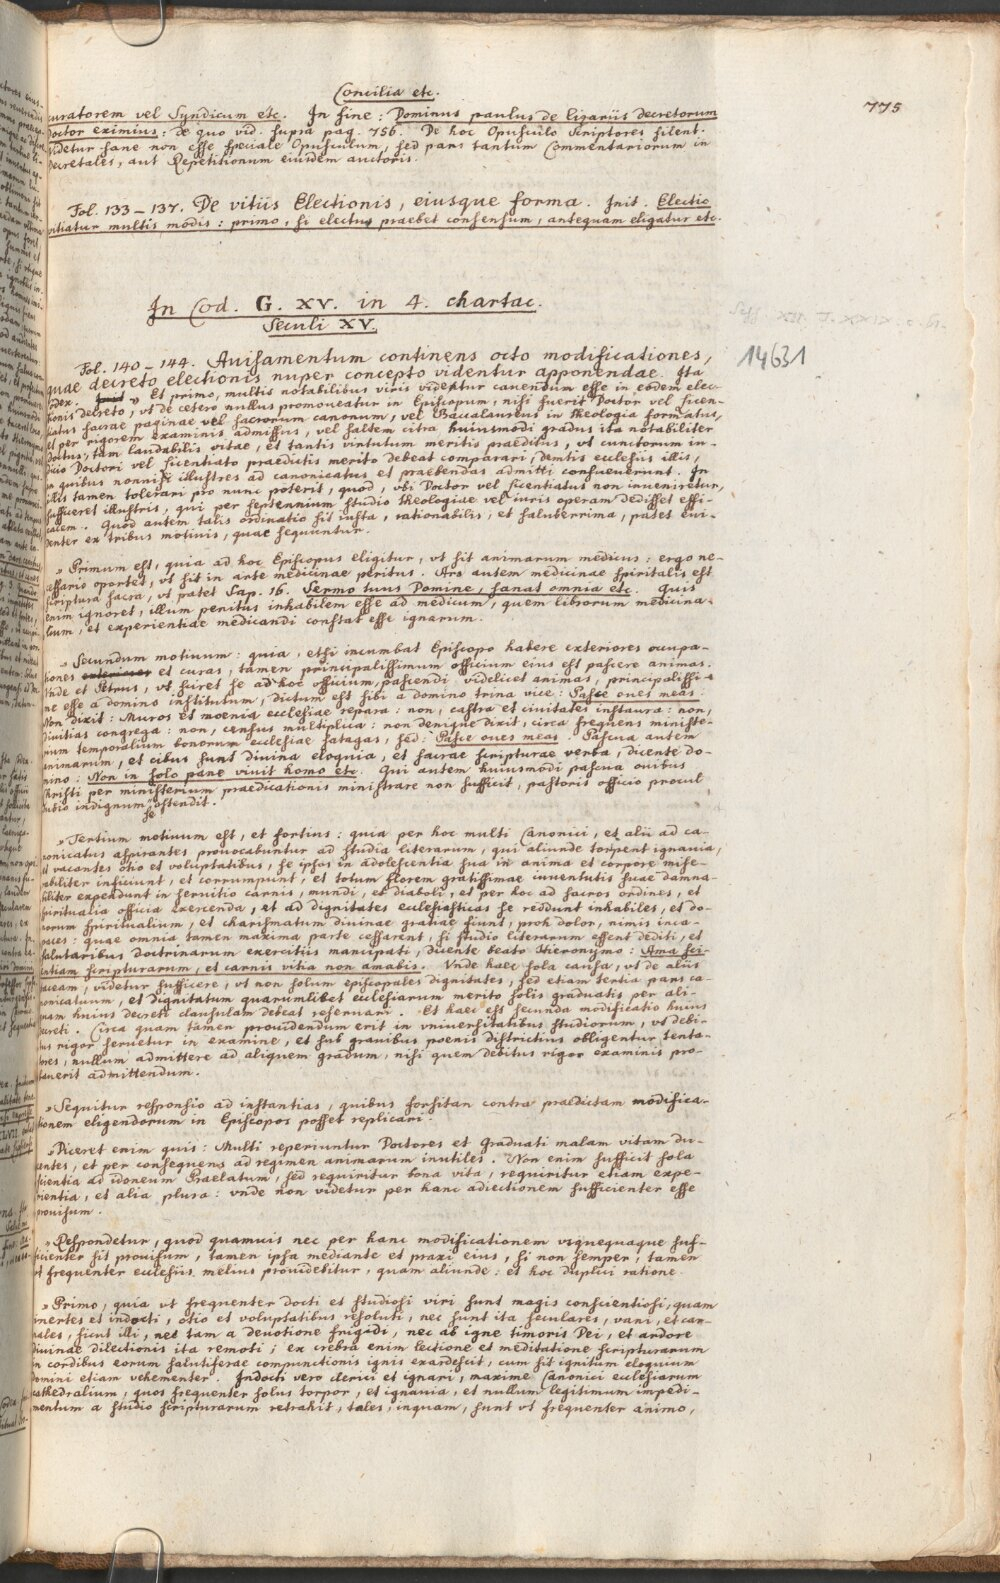 Concilia etc.
775
curatorem vel Syndicum etc. In fine: Dominus paulus de ligariis decretorum
doctor eximius: de quo vid. supra pag. 756. De hoc Opusculo Scriptores silent.
videtur sane non esse speciale Opusculum, sed pars tantum Commentariorum in
Decretales, aut Repetitionum eiusdem auctoris.
Fol. 133–137. De vitiis Electionis, eiusque forma. Init. Electio
vitiatur multis modis: primo, si electus praebet consensum, antequam eligatur etc.
In Cod. G. XV. in 4. chartac.
Seculi XV.
14631
Fol. 140–144. Auisamentum continens octo modificationes,
quae decreto electionis nuper concepto videntur apponendae. Ita
Codex. » Et primo, multis notabilibus viris videtur cauendum esse in eodem elec-
tionis decreto, vt de cetero nullus promoueatur in Episcopum, nisi fuerit Doctor vel licen-
tiatus sacrae paginae vel sacrorum canonum, vel Baccalaureus in theologia formatus,
et per rigorem examinis admissus, vel saltem citra huiusmodi gradus ita notabiliter
doctus, tam laudabilis vitae, et tantis virtutum meritis praeditus, vt cunctorum in-
dicio Doctori vel licentiato praedictis merito debeat comparari, demtis ecclesiis illis,
in quibus nonnisi illustres ad canonicatus et praebendas admitti consueuerunt. In
illis tamen tolerari pro nunc poterit, quod, vbi Doctor vel licentiatus non inueniretur,
sufficeret illustris, qui per septennium studio theologiae vel iuris operam dedisset effi-
cacem. Quod autem talis ordinatio sit iusta, rationabilis, et saluberrima, patet eui-
denter ex tribus motiuis, quae sequuntur.
» Primum est, quia ad hoc Episcopus eligitur, vt sit animarum medicus: ergo ne-
cessario oportet, vt sit in arte medicinae peritus. Ars autem medicinae spiritalis est
scriptura sacra, vt patet Sap. 16. Sermo tuus Domine, sanat omnia etc. Quis
enim ignoret, illum penitus inhabilem esse ad medicum, quem librorum medicina-
lium, et experientiae medicandi constat esse ignarum.
» Secundum motiuum: quia, etsi incumbat Episcopo habere exteriores occupa-
tiones et curas, tamen principalissimum officium eius est pascere animas.
Vnde et Petrus, vt sciret se ad hoc officium pascendi videlicet animas, principalissi-
me esse a domino institutum, dictum est sibi a domino trina vice: Pasce oues meas:
Non dixit: Muros et moenia ecclesiae repara: non, castra et ciuitates instaura: non,
diuitias congrega: non, census multiplica: non denique dixit, circa frequens ministe-
rium temporalium bonorum ecclesiae satagas, sed: Pasce oues meas. Pascua autem
animarum, et cibus sunt diuina eloquia, et sacrae scripturae verba, dicente do-
mino: Non in solo pane viuit homo etc. Qui autem huiusmodi pascua ouibus
Christi per ministerium praedicationis ministrare non sufficit, pastoris officio procul
dubio indignum se ostendit.
» Tertium motiuum est, et fortius: quia per hoc multi Canonici, et alii ad ca-
nonicatus aspirantes prouocabuntur ad studia literarum, qui aliunde torpent ignauia,
et vacantes otio et voluptatibus, se ipsos in adolescentia sua in anima et corpore mise-
rabiliter inficiunt, et corrumpunt, et totum florem gratissimae iuuentutis suae damna-
biliter expendunt in seruitio carnis, mundi, et diaboli, et per hoc ad sacros ordines, et
spiritualia officia exercenda, et ad dignitates ecclesiasticas se reddunt inhabiles, et do-
norum spiritualium, et charismatum diuinae gratiae fiunt, proh dolor, nimis inca-
paces: quae omnia tamen maxima parte cessarent, si studio literarum essent dediti, et
salutaribus doctrinarum exercitiis mancipati, dicente beato Hieronymo: Ama sci-
entiam scripturarum, et carnis vitia non amabis. Vnde haec sola causa, vt de aliis
taceam, videtur sufficere, vt non solum episcopales dignitates, sed etiam tertia pars ca-
nonicatuum, et dignitatum quarumlibet ecclesiarum merito solis graduatis per ali-
quam huius decreti clausulam debeat reseruari. Et haec est secunda modificatio huius
decreti. Circa quam tamen prouidendum erit in vniuersitatibus studiorum, vt debi-
tus rigor seruetur in examine, et sub grauibus poenis districtius obligentur tenta-
tores, nullum admittere ad aliquem gradum, nisi quem debitus rigor examinis pro-
bauerit admittendum.
» Sequitur responsio ad instantias, quibus forsitan contra praedictam modifica-
tionem eligendorum in Episcopos posset replicari.
» Diceret enim quis: Multi reperiuntur Doctores et Graduati malam vitam du-
centes, et per consequens ad regimen animarum inutiles. Non enim sufficit sola
scientia ad idoneum Praelatum, sed requiritur bona vita, requiritur etiam expe-
rientia, et alia plura: vnde non videtur per hanc adiectionem sufficienter esse
prouisum.
» Respondetur, quod quamuis nec per hanc modificationem vsquequaque suf-
ficienter sit prouisum, tamen ipsa mediante et praxi eius, si non semper, tamen
vt frequenter ecclesiis melius prouidebitur, quam aliunde: et hoc duplici ratione.
» Primo, quia vt frequenter docti et studiosi viri sunt magis conscientiosi, quam
inertes et indocti, otio et voluptatibus resoluti, nec sunt ita seculares, vani, et car-
nales, sicut illi, nec tam a deuotione frigidi, nec ab igne timoris Dei, et ardore
diuinae dilectionis ita remoti; ex crebra enim lectione et meditatione scripturarum
in cordibus eorum salutiferae compunctionis ignis exardescit, cum sit ignitum eloquium
domini etiam vehementer. Indocti vero clerici et ignari, maxime Canonici ecclesiarum
cathedralium, quos frequenter solus torpor, et ignauia, et nullum legitimum impedi-
mentum a studio scripturarum retrahit, tales, inquam, sunt vt frequenter animo,